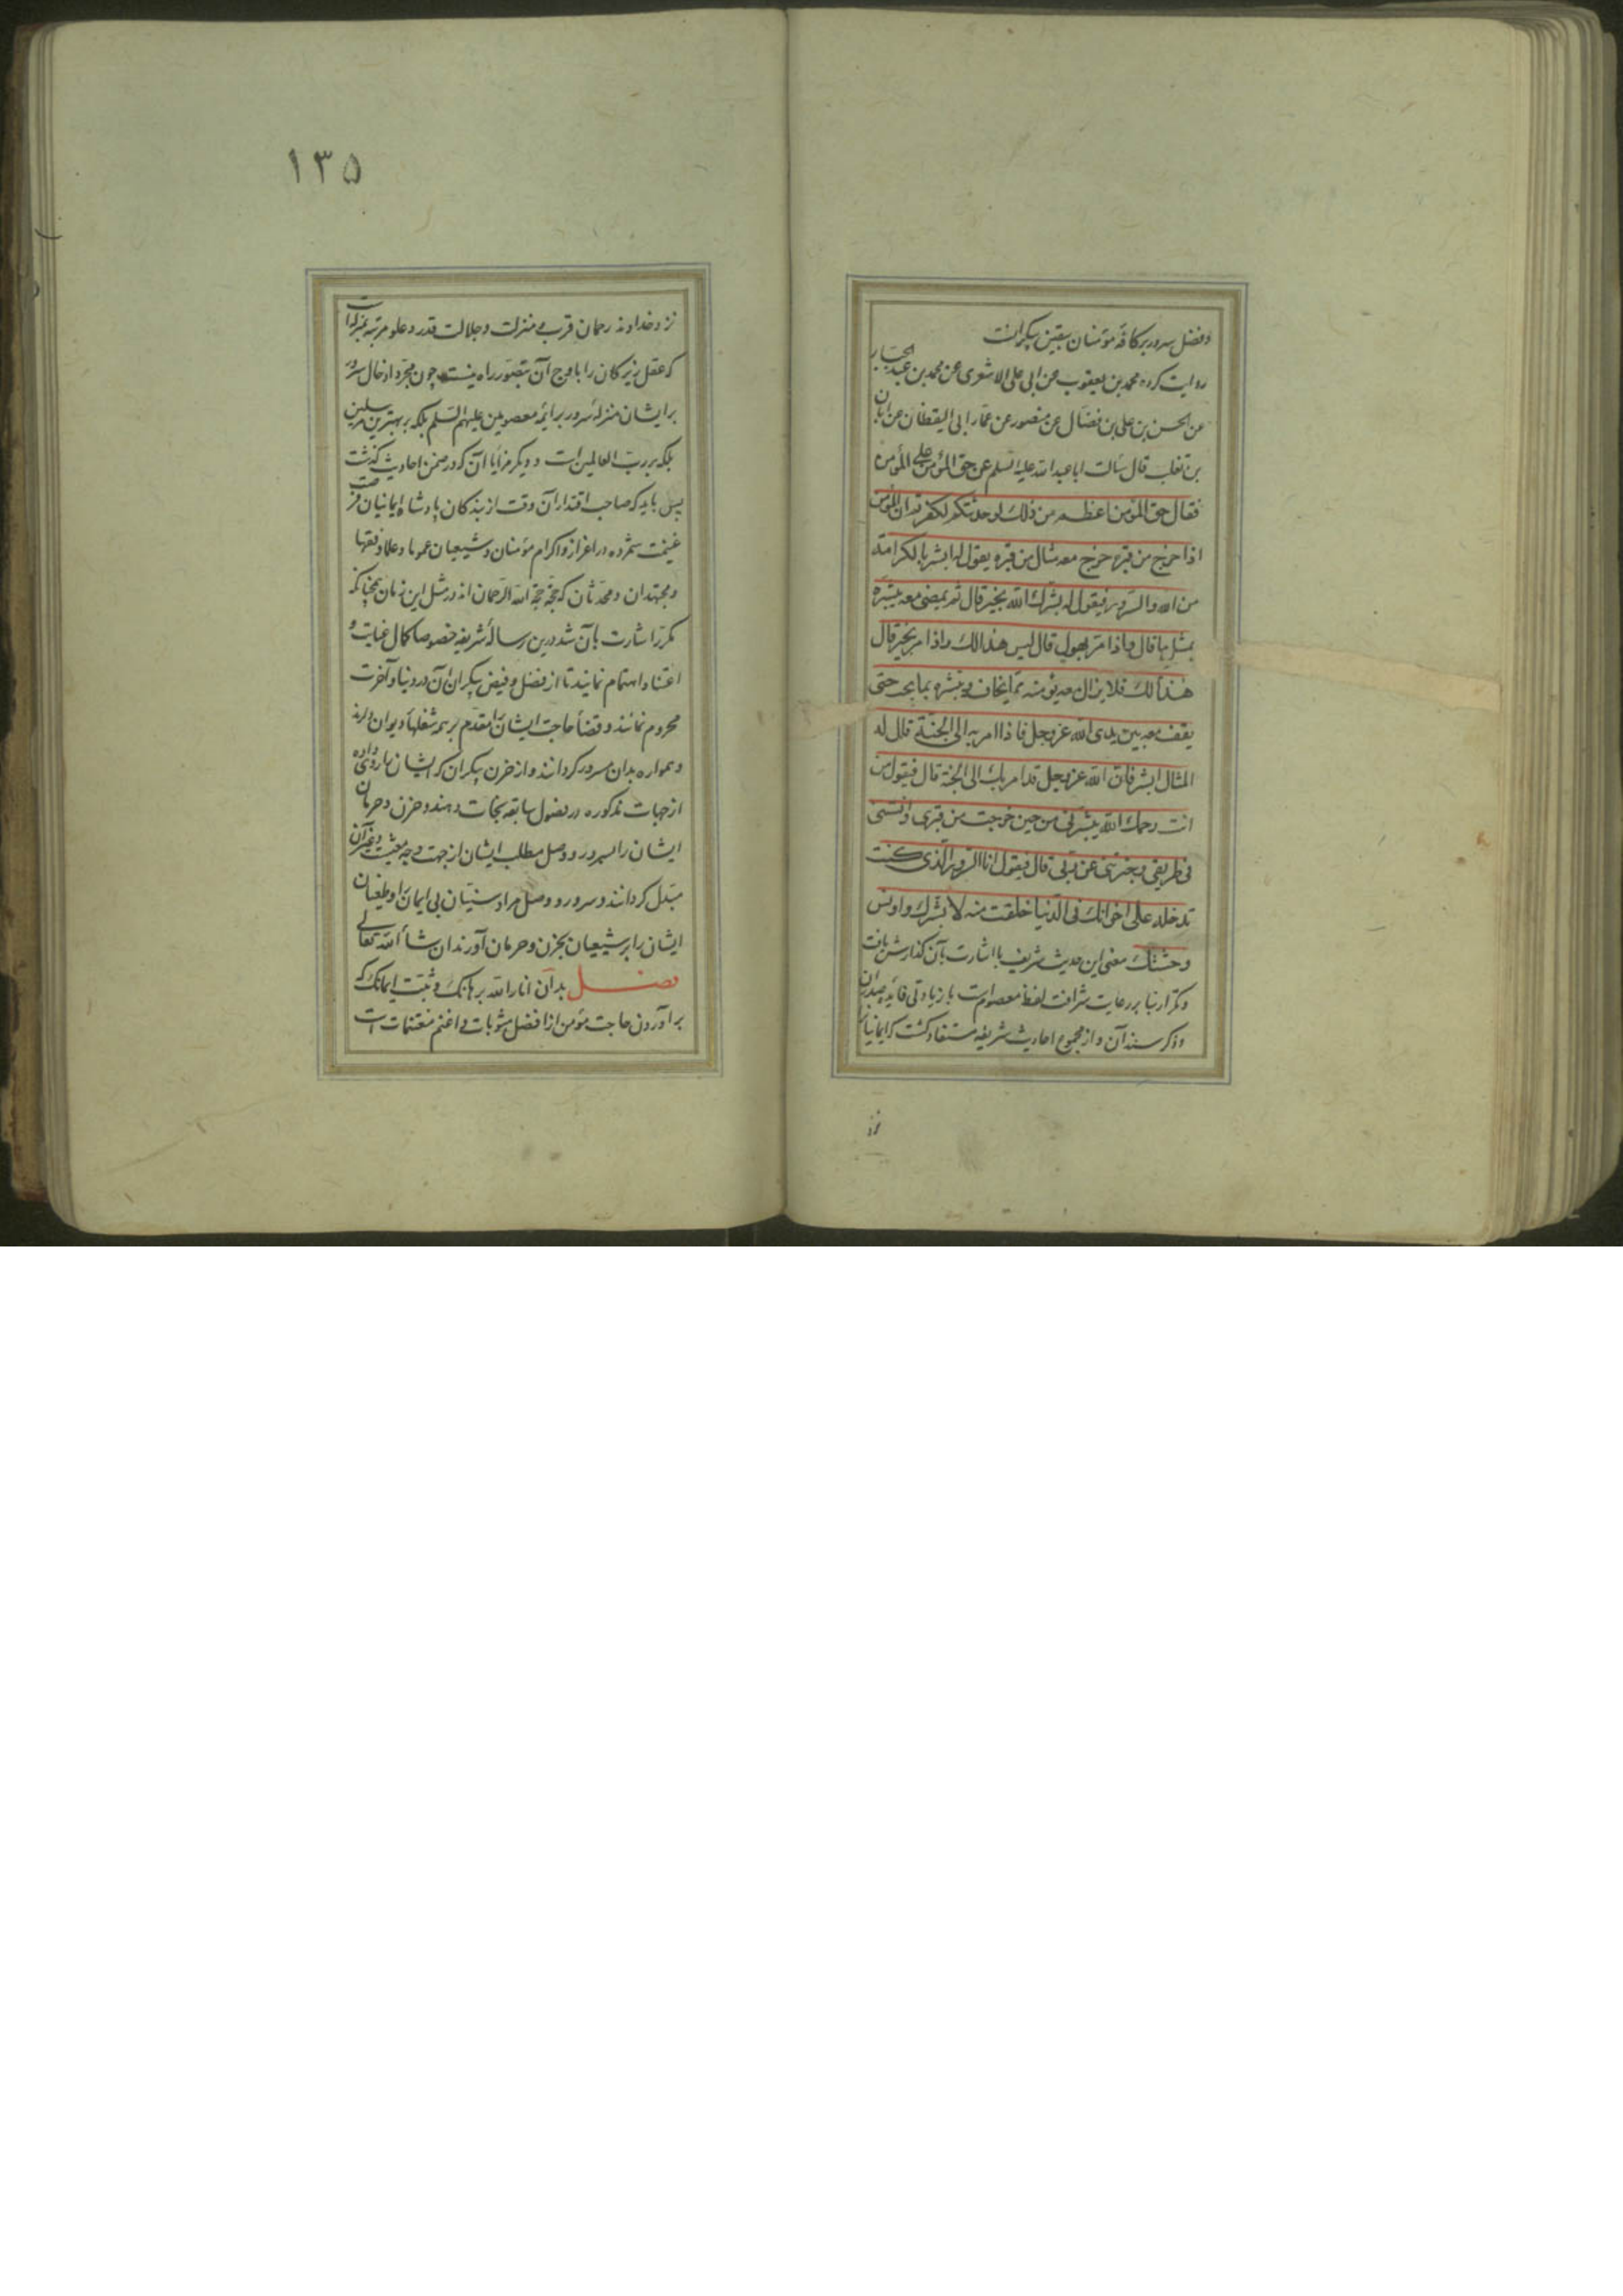 وفضل سرور بر کافه مؤمنان بیقین بیکرانست
روایت کرده محمد بن یعقوب عن ابی علی الاشعری عن محمد بن عبد الجبار
عن الحسن بن علی بن فضال عن منصور عن عمار ابی الیقظان عن ابان
بن تغلب قال سالت ابا عبد الله علیه السلم عن حق المؤمن علی المؤمن
فقال حق المؤمن اعظم من ذلک لو حدثتکم لکفرتم ان المؤمن
اذا خرج من قبره خرج معه مثال من قبره یقول له ابشر بالکرامة
من الله والسرور فیقول له بشرک الله بخیر قال ثم یمضی معه یبشره
بمثل ما قال واذا مر بهول قال لیس هذا لک واذا مر بخیر قال
هذا لک فلا یزال معه یؤمنه مما یخاف ویبشره بما یحب حتی
یقف معه بین یدی الله عز وجل فاذا امر به الی الجنة قال له
المثال ابشر فان الله عز وجل قد امر بک الی الجنة قال فیقول من
انت رحمک الله یبشرنی من حین خرجت من قبری وآنستنی
فی طریقی وخبرتنی عن ربی قال فیقول انا السرور الذی کنت
تدخله علی اخوانک فی الدنیا خلقت منه لابشرک واونس
وحشتک معنی این حدیث شریف با اشارت بآن گذارش یافت
وتکرار بنا بر رعایت شرافت لفظ معصوم است با زیادتی فائده
وذکر سند آن و از مجموع احادیث شریفه مستفاد گشت که ایمانیان
نزد
۱۳۵
نزد خداوند رحمان قرب و منزلت وجلالت قدر وعلو مرتبه بمنزله‌ایست
که عقل زیرکان را باوج آن تصور راه نیست چون مجرد ادخال سرور
بر ایشان منزله سرور بر ائمه معصومین علیهم السلم بلکه بر بهترین مرسلین
بلکه بر رب العالمین است و دیگر مزایا آن که در ضمن احادیث گذشت
پس باید که صاحب اقتدار آن وقت از بندگان پادشاه ایمانیان فرصت
غنیمت شمرده در اعزاز واکرام مؤمنان وشیعیان عموما وعلما وفقها
ومجتهدان ومحدثان که حجة حجة الله الرحمان اند در مثل این زمان چنانکه
مکرر اشارت بآن شد درین رساله شریفه خصوصا کمال عنایت و
اعتنا واهتمام نمایند تا از فضل وفیض بیکران آن در دنیا وآخرت
محروم نمانند وقضا حاجت ایشان را مقدم بر همه شغلها ودیوان دارند
وهمواره بدان مسرور گردانند و از حزن بیکران که ایشان را روی داده
از جهات مذکوره در فصول سابقه نجات دهند وحزن وحرمان
ایشان را بسرور ووصل مطلب ایشان از جهت وجه معیشت وغیر آن
مبدل گردانند وسرور ووصل مراد سنیان بی ایمان را وطغیان
ایشان را بر شیعیان بحزن وحرمان آورند ان شاء الله تعالی
فصل بدان انار الله برهانک وثبت ایمانک که
برآوردن حاجت مؤمن از افضل مثوبات واغنم مغتنمات است